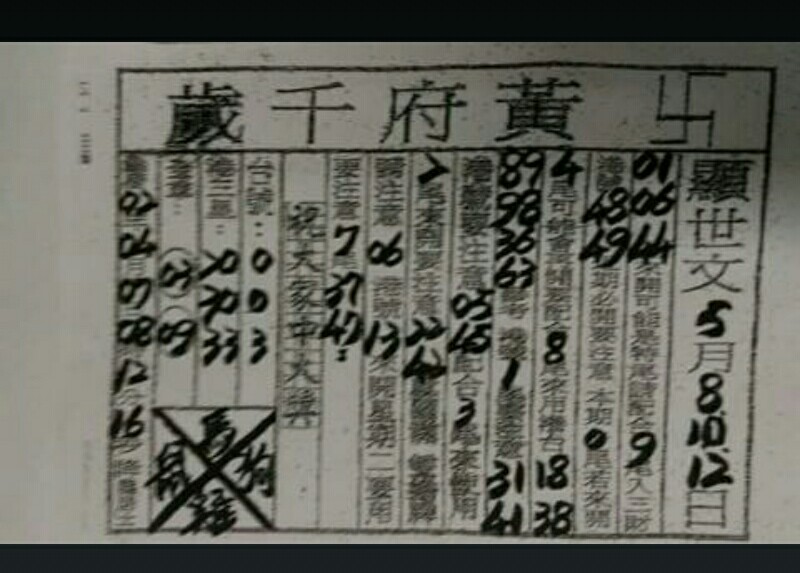 卍黃府千歲
顯世文5月8.10.12日
01 06 44來開可能是特尾請配合9尾入三財
港號48 49期必開要注意 本期0尾若來開
4尾可能會再開要配合8尾來用港台18 38
89 98 36 63 港號1尾要注意31 41
港號要注意05 45配合3尾來使用
2尾來開要注意22 42
請注意06港號13來開星期二要用
要注意7尾37 47
祝大家中大獎
台號:0 0 3
港三星:20 30 33
03 09
馬
狗
雞
02 04 07 08 12 16